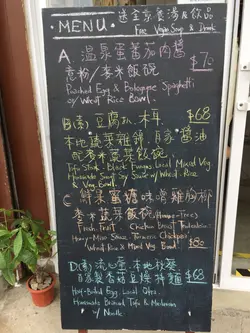 MENU
送全素養湯及飲品
Free Vegan Soup & Drink
A. 溫泉蛋蕃茄肉醬
意粉/麥米飯碗 $78
Poached Egg & Bolognese Spaghetti
or Wheat Rice Bowl.
B(素) 豆腐扒.木耳. $68
本地蔬菜雜錦.自家醬油
配麥米蔬菜飯碗.
Tofu Steak, Black Fungus Local Mixed Veg
Homemade Soup Soy Sauce w/ Wheat + Rice
& Veg. Bowl.
C 鮮果蜜糖味噌雞胸柳
麥米蔬菜飯碗
Fresh Fruit, Chicken Breast
Honey-Miso Sauce
Wheat Rice & Mixed Veg Bowl. $82
D(素) 流心蛋.本地
$68
Half-Boiled Egg, Local
Homemade Braised Tofu & Mushroom
w/ Noodle